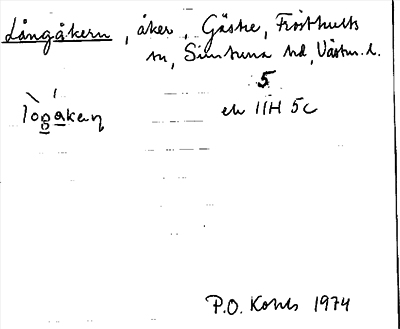 Långåkern, åker, Gäste, Frösthults
sn, Simtuna hd, Västm. l.
5
ek 11H 5c
P.O. Kohls 1974